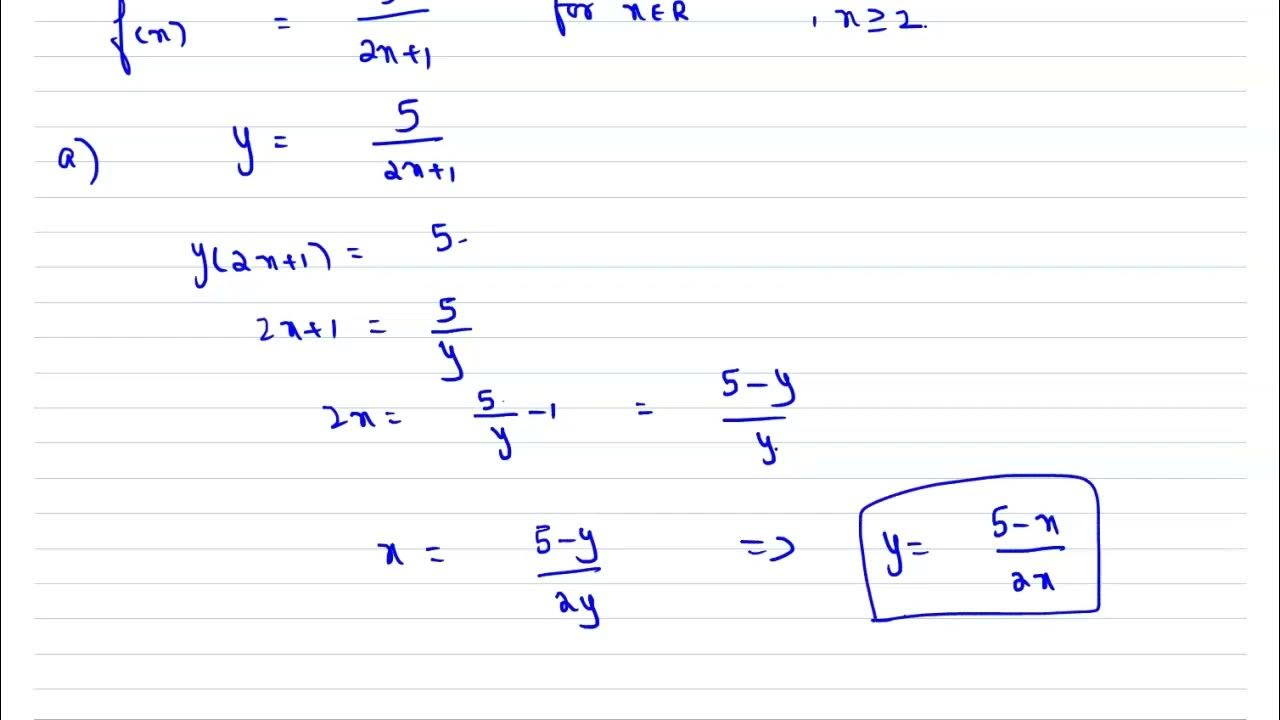 f(x) = 5/(2x+1) for x ∈ R , x ≥ 2.
a) y = 5/(2x+1)
y(2x+1) = 5.
2x+1 = 5/y
2x = 5/y - 1 = (5-y)/y.
x = (5-y)/2y => y = (5-x)/2x